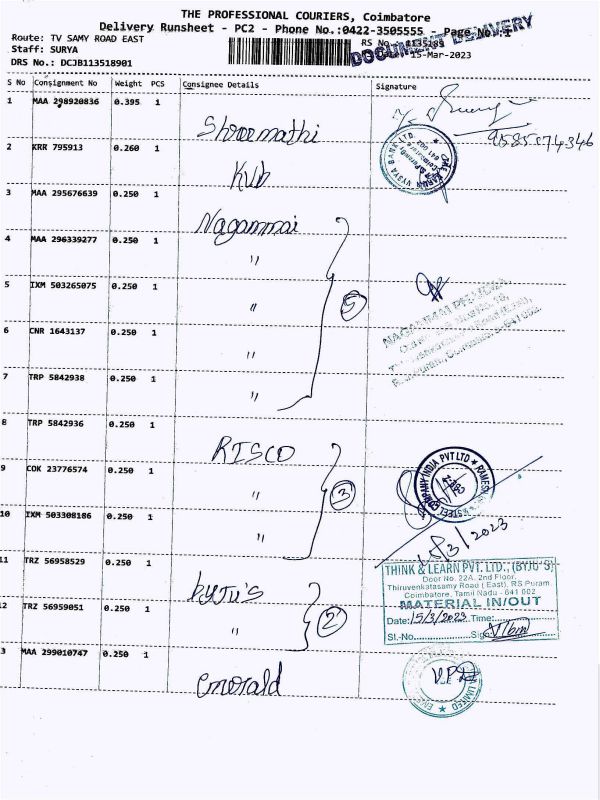 THE PROFESSIONAL COURIERS, Coimbatore
Delivery Runsheet - PC2 - Phone No.:0422-3505555 - Page No.:1
DOCUMENT DELIVERY
Route: TV SAMY ROAD EAST
Staff: SURYA
DRS No.: DCJB113518901
RS No.
15-Mar-2023
S No Consignment No Weight PCS Consignee Details Signature
1 MAA 298920836 0.395 1 Shreemathi
9585074346
2 KRR 795913 0.260 1 KVB
3 MAA 295676639 0.250 1 Nagammai
4 MAA 296339277 0.250 1 "
5 IXM 503265075 0.250 1 " 5
6 CNR 1643137 0.250 1 "
7 TRP 5842938 0.250 1 "
8 TRP 5842936 0.250 1 RISCO
9 COK 23776574 0.250 1 " 3
10 IXM 503308186 0.250 1 "
15/3/2023
11 TRZ 56958529 0.250 1 byju's
12 TRZ 56959051 0.250 1 " 2
THINK & LEARN PVT. LTD., (BYJU'S)
Door No. 22A, 2nd Floor,
Thiruvenkatasamy Road (East), RS Puram
Coimbatore, Tamil Nadu - 641 002
MATERIAL IN/OUT
Date: 15/3/2023 Time:
Sl.-No. Sign:
3 MAA 299010747 0.250 1 emerald